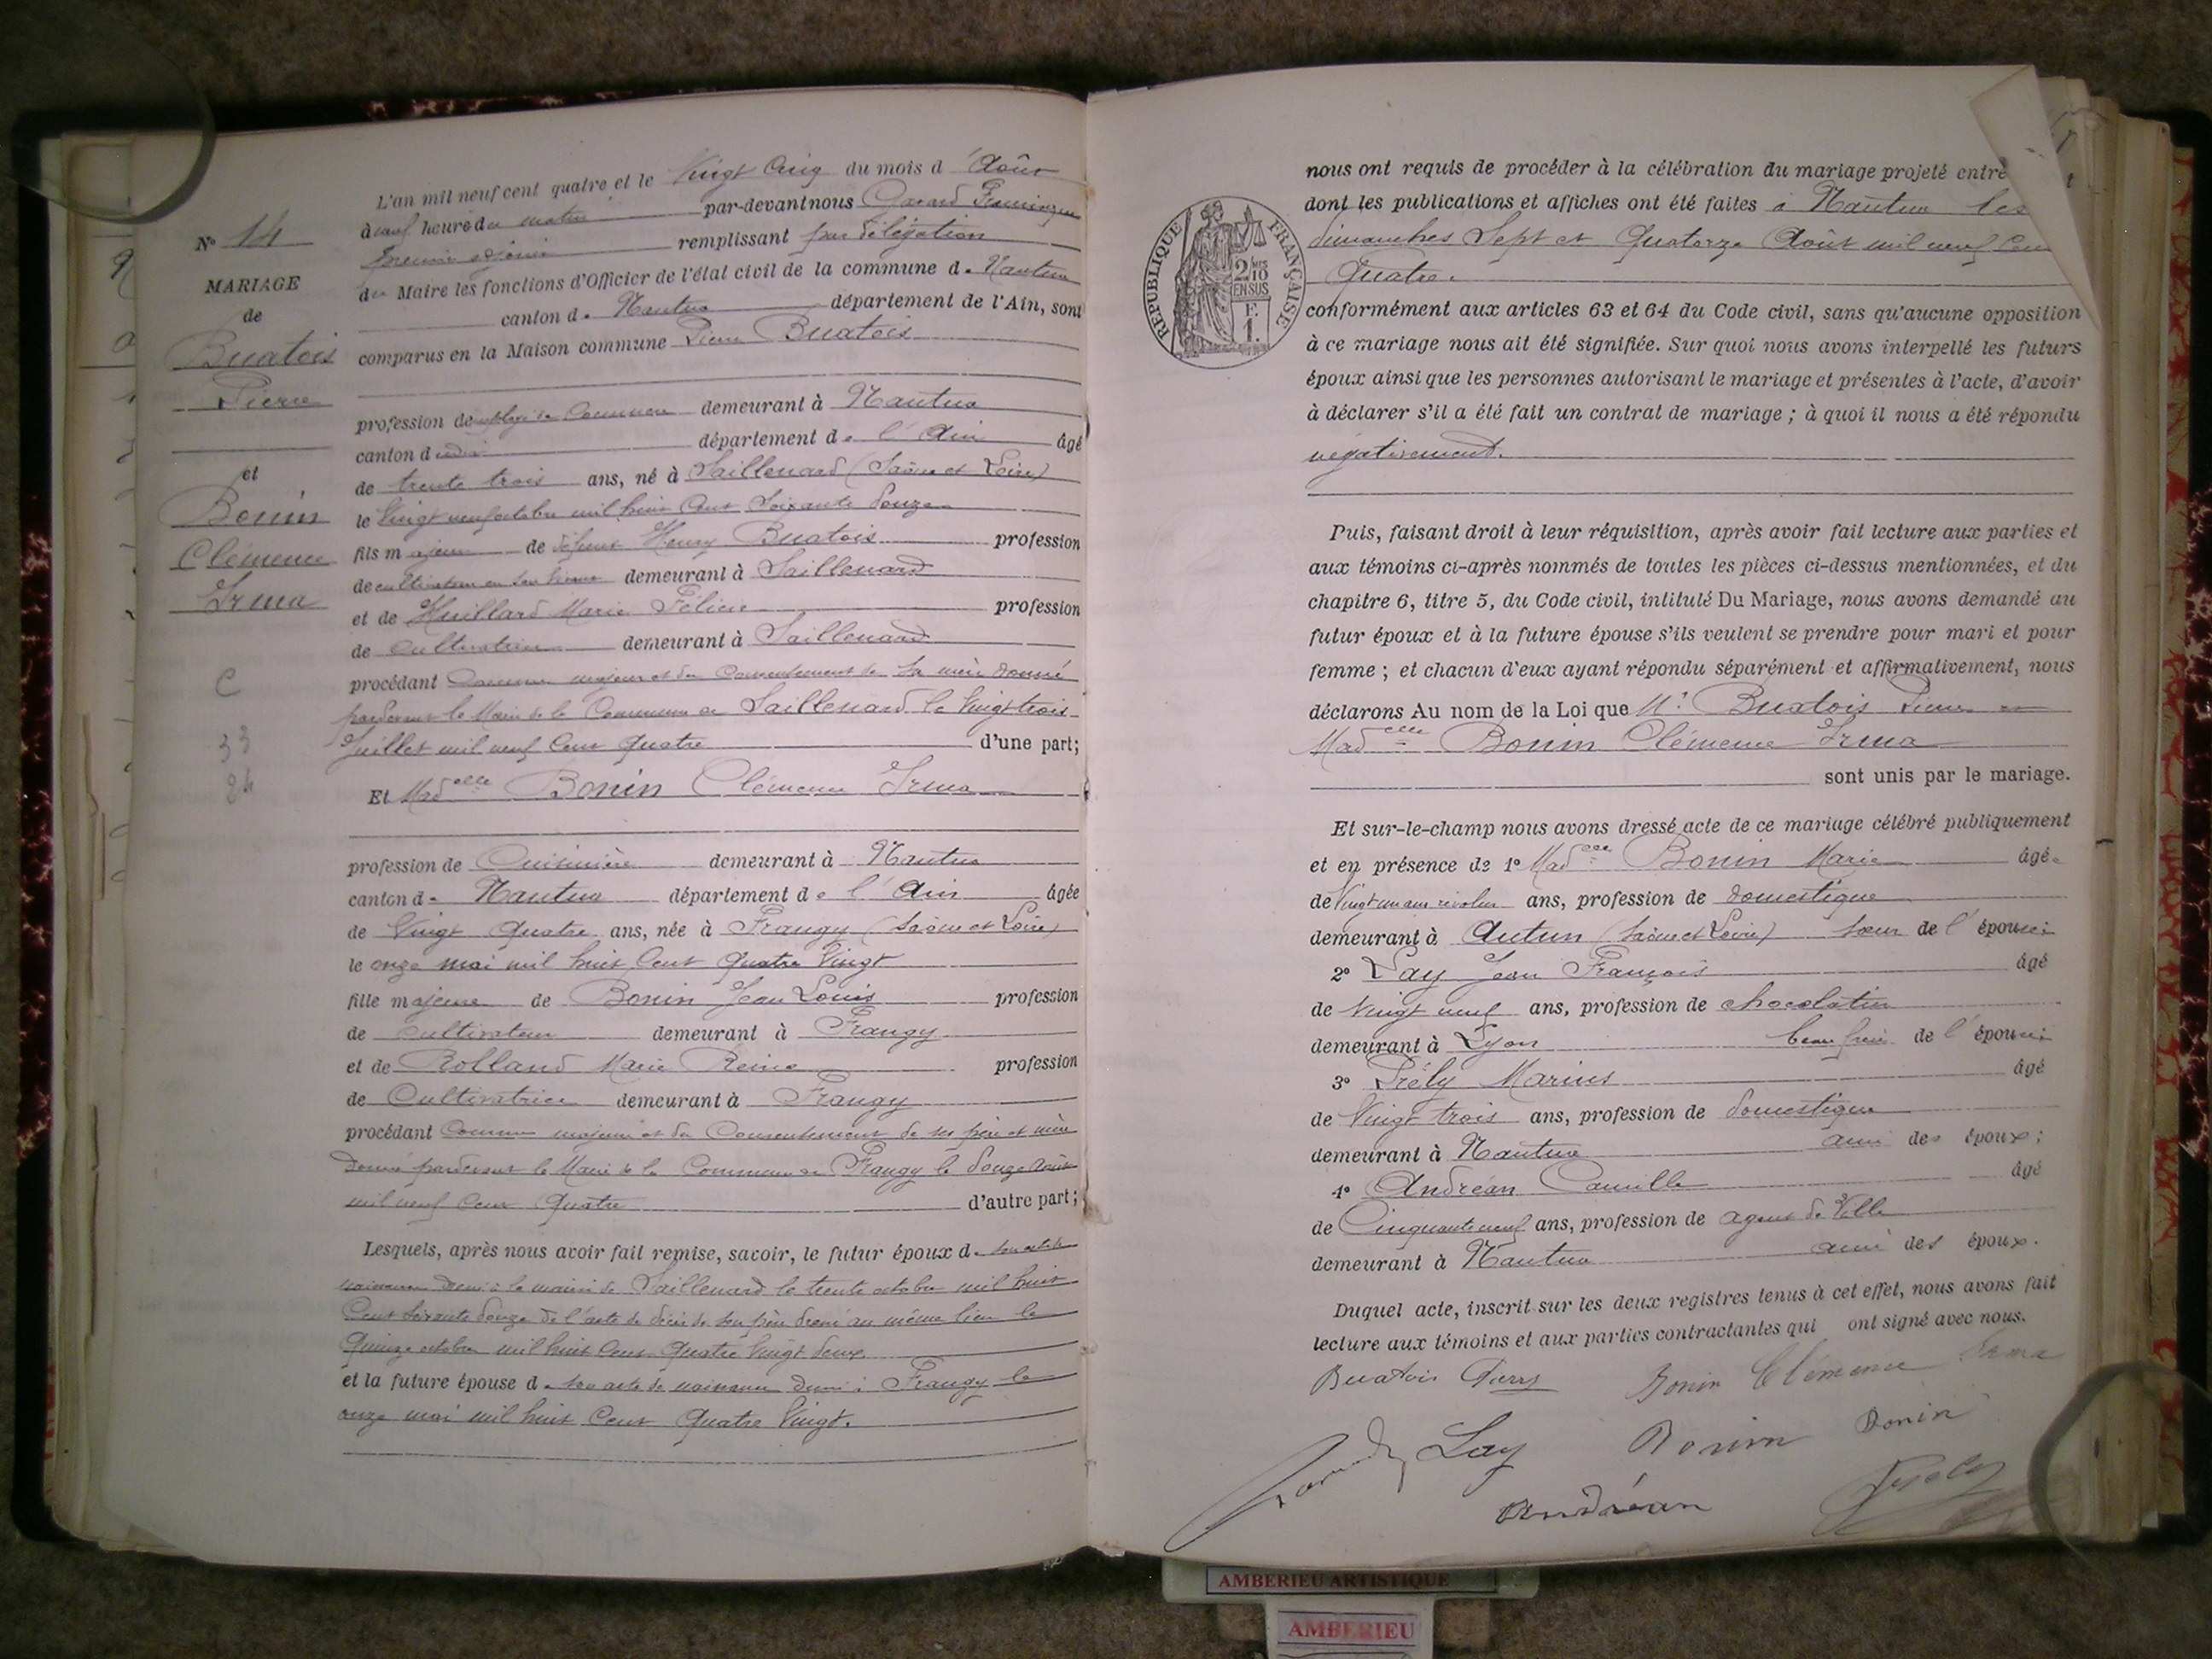 L'an mil neuf cent quatre et le Vingt Cinq du mois d'Août
à neuf heure du matin par-devant nous
premier adjoint remplissant par délégation
du Maire les fonctions d'Officier de l'état civil de la commune de Nantua
canton de Nantua département de l'Ain, sont
comparus en la Maison commune Pierre Buatois
N° 14
MARIAGE
de
Buatois
Pierre
et
Bonin
Clémence
Irma
C
33
24
profession de employé de Commerce demeurant à Nantua
canton dudit département de l'Ain âgé
de trente trois ans, né à Saillenard (Saône et Loire)
le Vingt neuf octobre mil huit Cent Soixante douze
fils majeur de défunt Henry Buatois profession
de cultivateur en son vivant demeurant à Saillenard
et de Huillard Marie Félicie profession
de Cultivatrice demeurant à Saillenard
procédant Comme majeur et du Consentement de sa mère donné
pardevant le Maire de la Commune de Saillenard le Vingt trois
Juillet mil neuf Cent quatre d'une part;
Et Madelle Bonin Clémence Irma
profession de Cuisinière demeurant à Nantua
canton de Nantua département de l'Ain âgée
de Vingt Quatre ans, née à Frangy (Saône et Loire)
le onze mai mil huit Cent Quatre Vingt
fille majeure de Bonin Jean Louis profession
de Cultivateur demeurant à Frangy
et de Rolland Marie Reine profession
de Cultivatrice demeurant à Frangy
procédant Comme majeure et du Consentement de ses père et mère
donné pardevant le Maire de la Commune de Frangy le douze Août
mil neuf Cent Quatre d'autre part;
Lesquels, après nous avoir fait remise, savoir, le futur époux de son acte de
naissance dressé à la mairie de Saillenard le trente octobre mil huit
Cent Soixante douze de l'acte de décès de son père dressé au même lieu le
Quinze octobre mil huit Cent Quatre Vingt deux
et la future épouse de son acte de naissance dressé à Frangy le
onze mai mil huit Cent Quatre Vingt.
nous ont requis de procéder à la célébration du mariage projeté entre
dont les publications et affiches ont été faites à Nantua les
dimanches Sept et Quatorze Août mil neuf Cent
Quatre.
RÉPUBLIQUE FRANÇAISE
2/10
EN SUS
F.
1.
conformément aux articles 63 et 64 du Code civil, sans qu'aucune opposition
à ce mariage nous ait été signifiée. Sur quoi nous avons interpellé les futurs
époux ainsi que les personnes autorisant le mariage et présentes à l'acte, d'avoir
à déclarer s'il a été fait un contrat de mariage ; à quoi il nous a été répondu
négativement.
Puis, faisant droit à leur réquisition, après avoir fait lecture aux parties et
aux témoins ci-après nommés de toutes les pièces ci-dessus mentionnées, et du
chapitre 6, titre 5, du Code civil, intitulé Du Mariage, nous avons demandé au
futur époux et à la future épouse s'ils veulent se prendre pour mari et pour
femme ; et chacun d'eux ayant répondu séparément et affirmativement, nous
déclarons Au nom de la Loi que Mr Buatois Pierre et
Madelle Bonin Clémence Irma
sont unis par le mariage.
Et sur-le-champ nous avons dressé acte de ce mariage célébré publiquement
et en présence de 1° Madelle Bonin Marie âgée
de Vingt un ans révolus ans, profession de domestique
demeurant à Autun (Saône et Loire) sœur de l'épouse;
2° Lay Jean François âgé
de Vingt neuf ans, profession de chocolatier
demeurant à Lyon beau frère de l'épouse;
3° Prély Marius âgé
de Vingt trois ans, profession de domestique
demeurant à Nantua ami des époux;
4° Andréan Camille âgé
de Cinquante neuf ans, profession de agent de Ville
demeurant à Nantua ami des époux.
Duquel acte, inscrit sur les deux registres tenus à cet effet, nous avons fait
lecture aux témoins et aux parties contractantes qui ont signé avec nous.
Buatois Pierre Bonin Clémence Irma
Lay Bonin Bonin
Andréan
AMBERIEU ARTISTIQUE
AMBERIEU